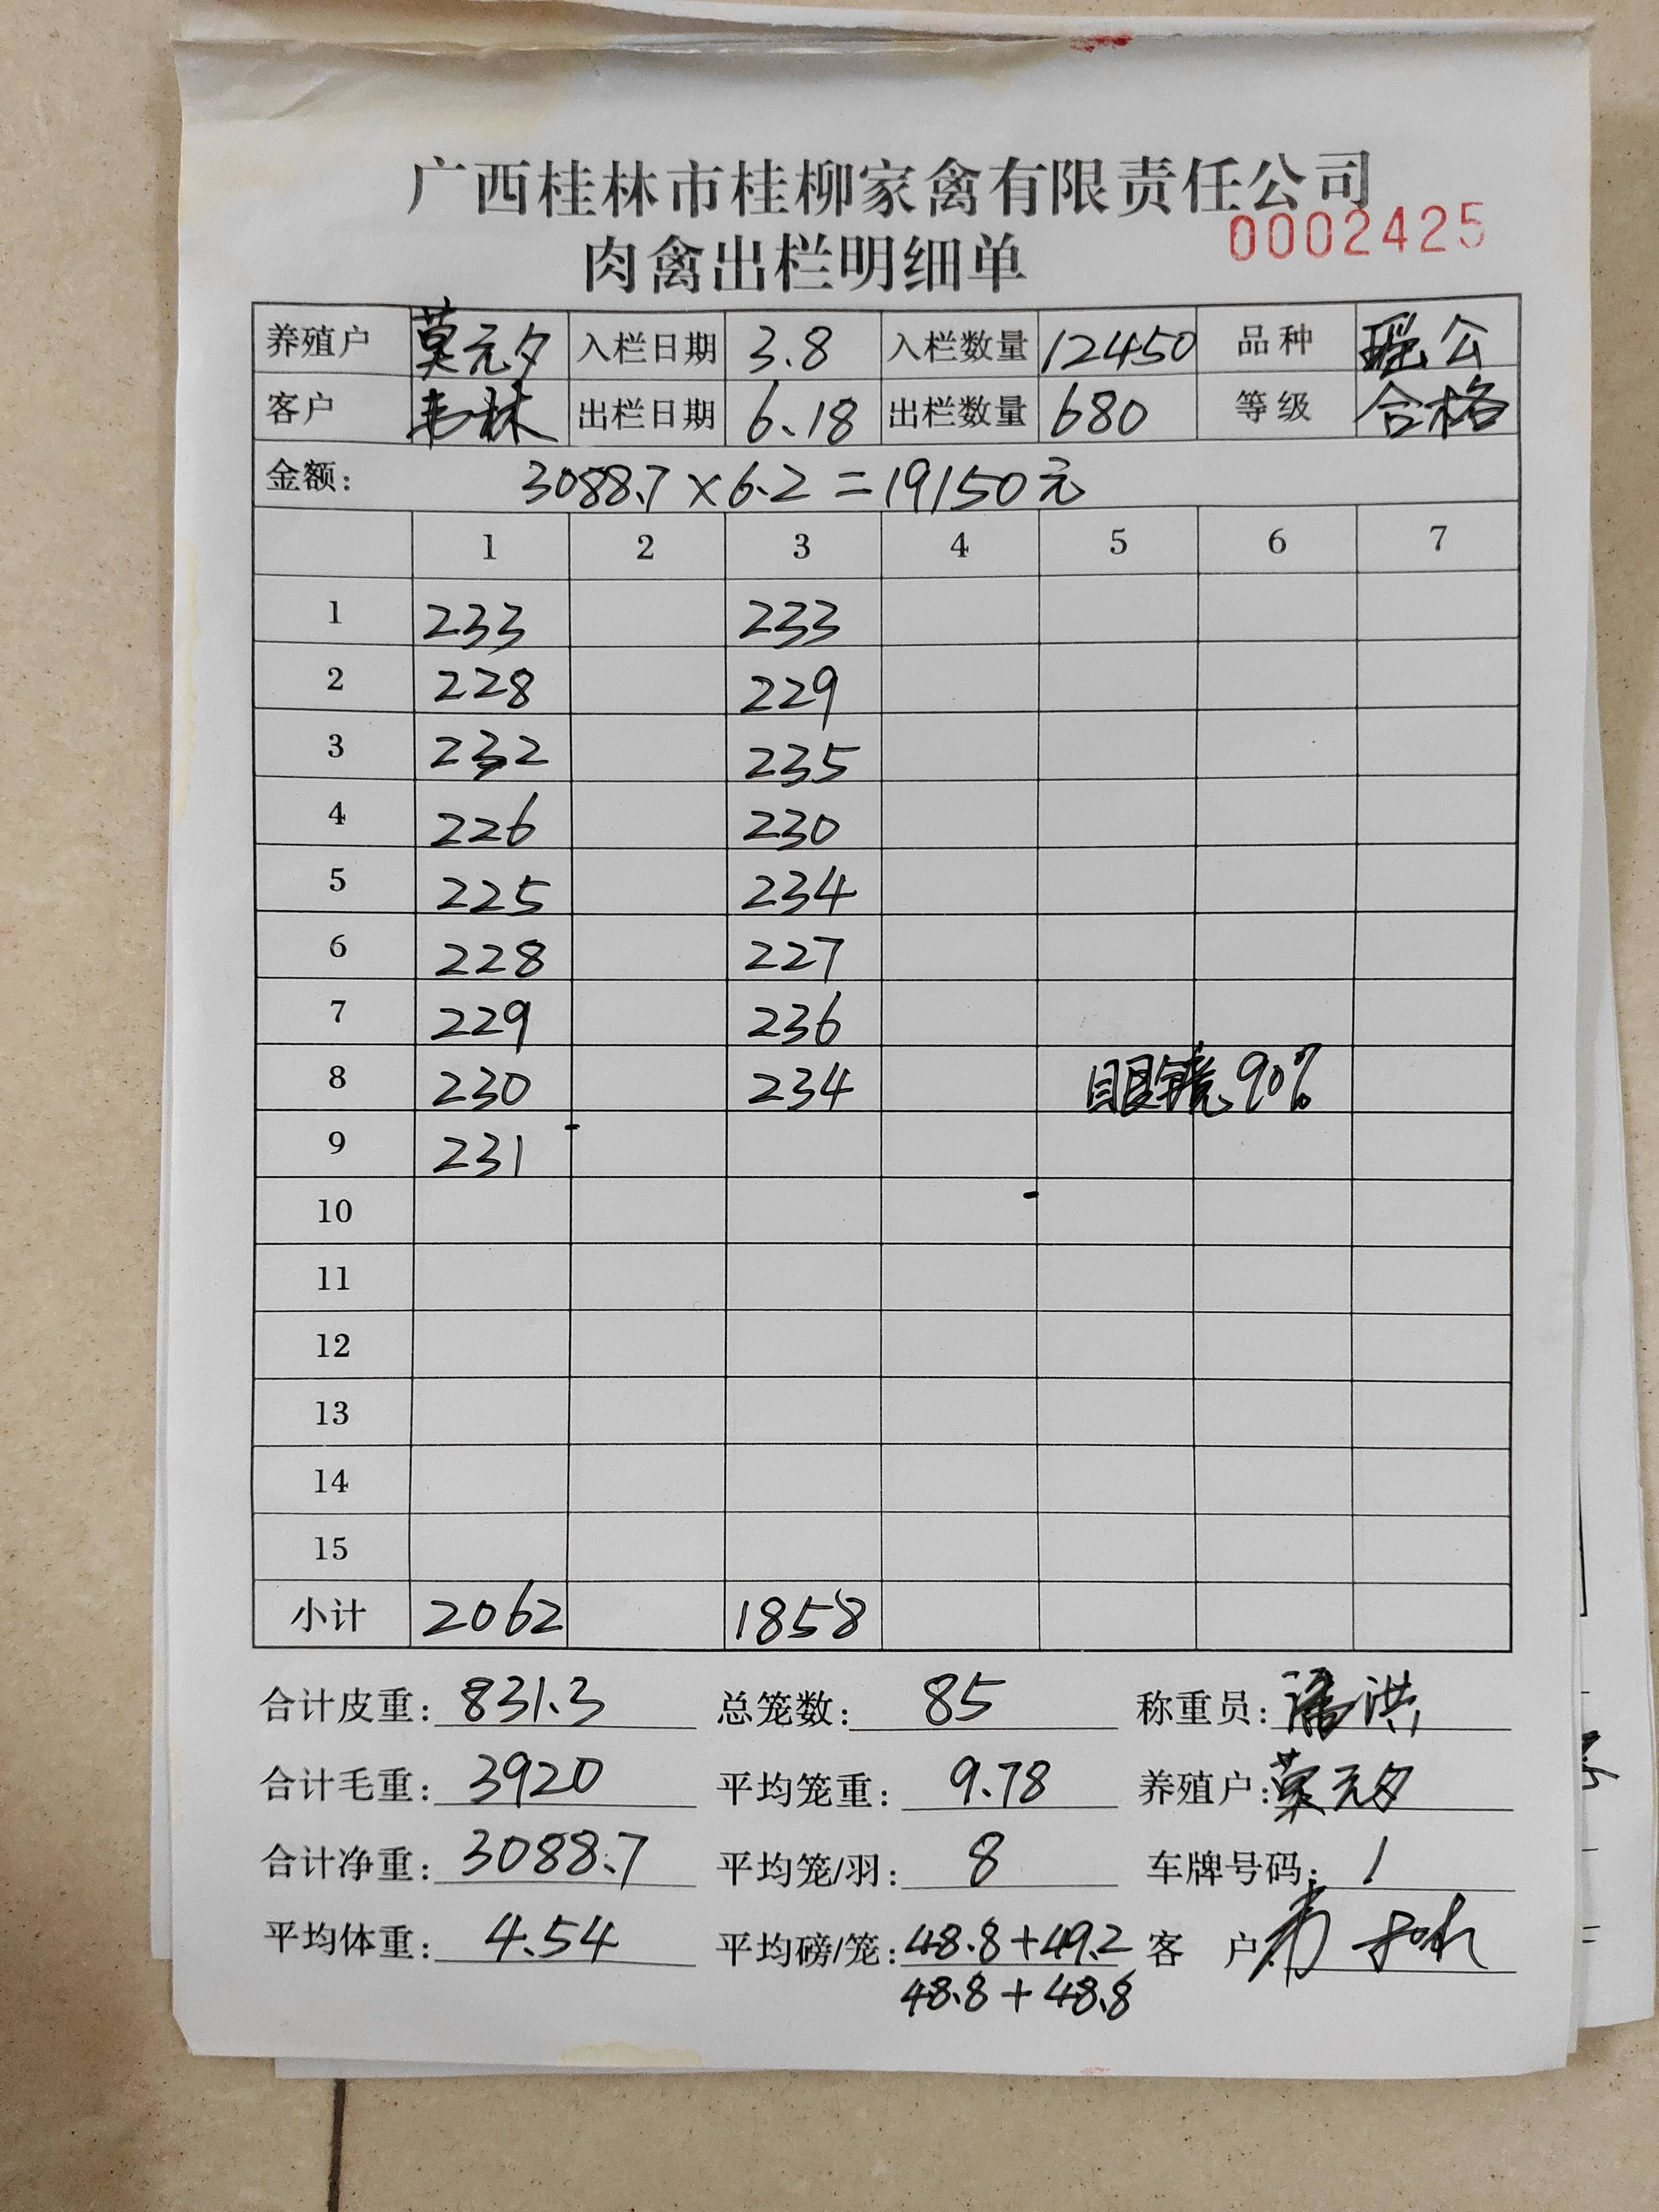 广西桂林市桂柳家禽有限责任公司
0002425
肉禽出栏明细单
养殖户 莫元夕 入栏日期 3.8 入栏数量 12450 品种 瑶公
客户 韦林 出栏日期 6.18 出栏数量 680 等级 合格
金额: 3088.7×6.2=19150元
1 2 3 4 5 6 7
1 233 233
2 228 229
3 232 235
4 226 230
5 225 234
6 228 227
7 229 236
8 230 234 眼镜90%
9 231
10
11
12
13
14
15
小计 2062 1858
合计皮重: 831.3 总笼数: 85 称重员: 潘洪
合计毛重: 3920 平均笼重: 9.78 养殖户: 莫元夕
合计净重: 3088.7 平均笼/羽: 8 车牌号码: 1
平均体重: 4.54 平均磅/笼: 48.8+49.2 客 户:
48.8+48.8